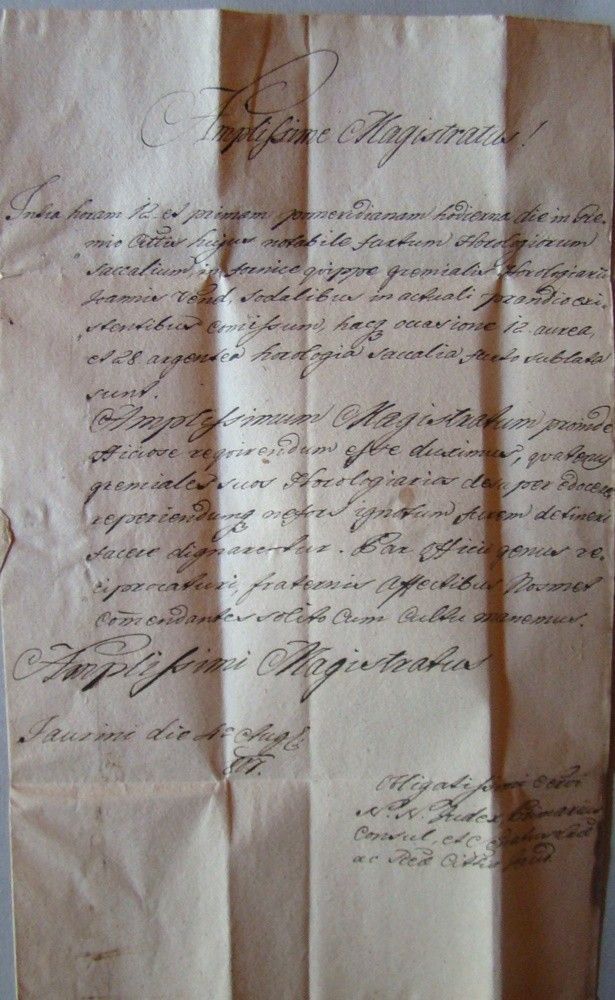 Amplissime Magistratus!
Intra horam 12. et primam pomeridianam hodierna die in Gre-
mio Cittis hujus notabile furtum Horologiorum
saccalium, in fornice quippe gremialis Horologiarii
Joannis sodalibus in actuali prandio exi-
stentibus comissum, hacq occasione 12. aurea,
et 28. argentea horologia saccalia furto sublata
sunt.
Amplissimum Magistratum proinde
officiose requirendum esse duximus, quatenus
gremiales suos Horologiarios desuper edocere
reperiendumq nefors ignotum furem detineri
facere dignaretur. Par officii genus re-
ciprocaturi, fraternis affectibus Nosmet
Comendantes solito cum cultu manemus.
Amplissimi Magistratus
Jaurini die 4a Aug.
Obligatissimi
N. N. Judex Primarius
Consul, etc
ac Citttis